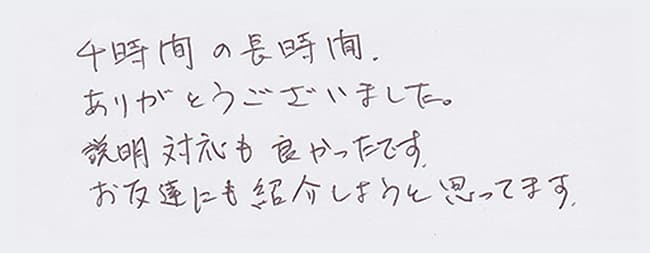 4時間の長時間.
ありがとうございました。
説明対応も良かったです.
お友達にも紹介しようと思ってます.